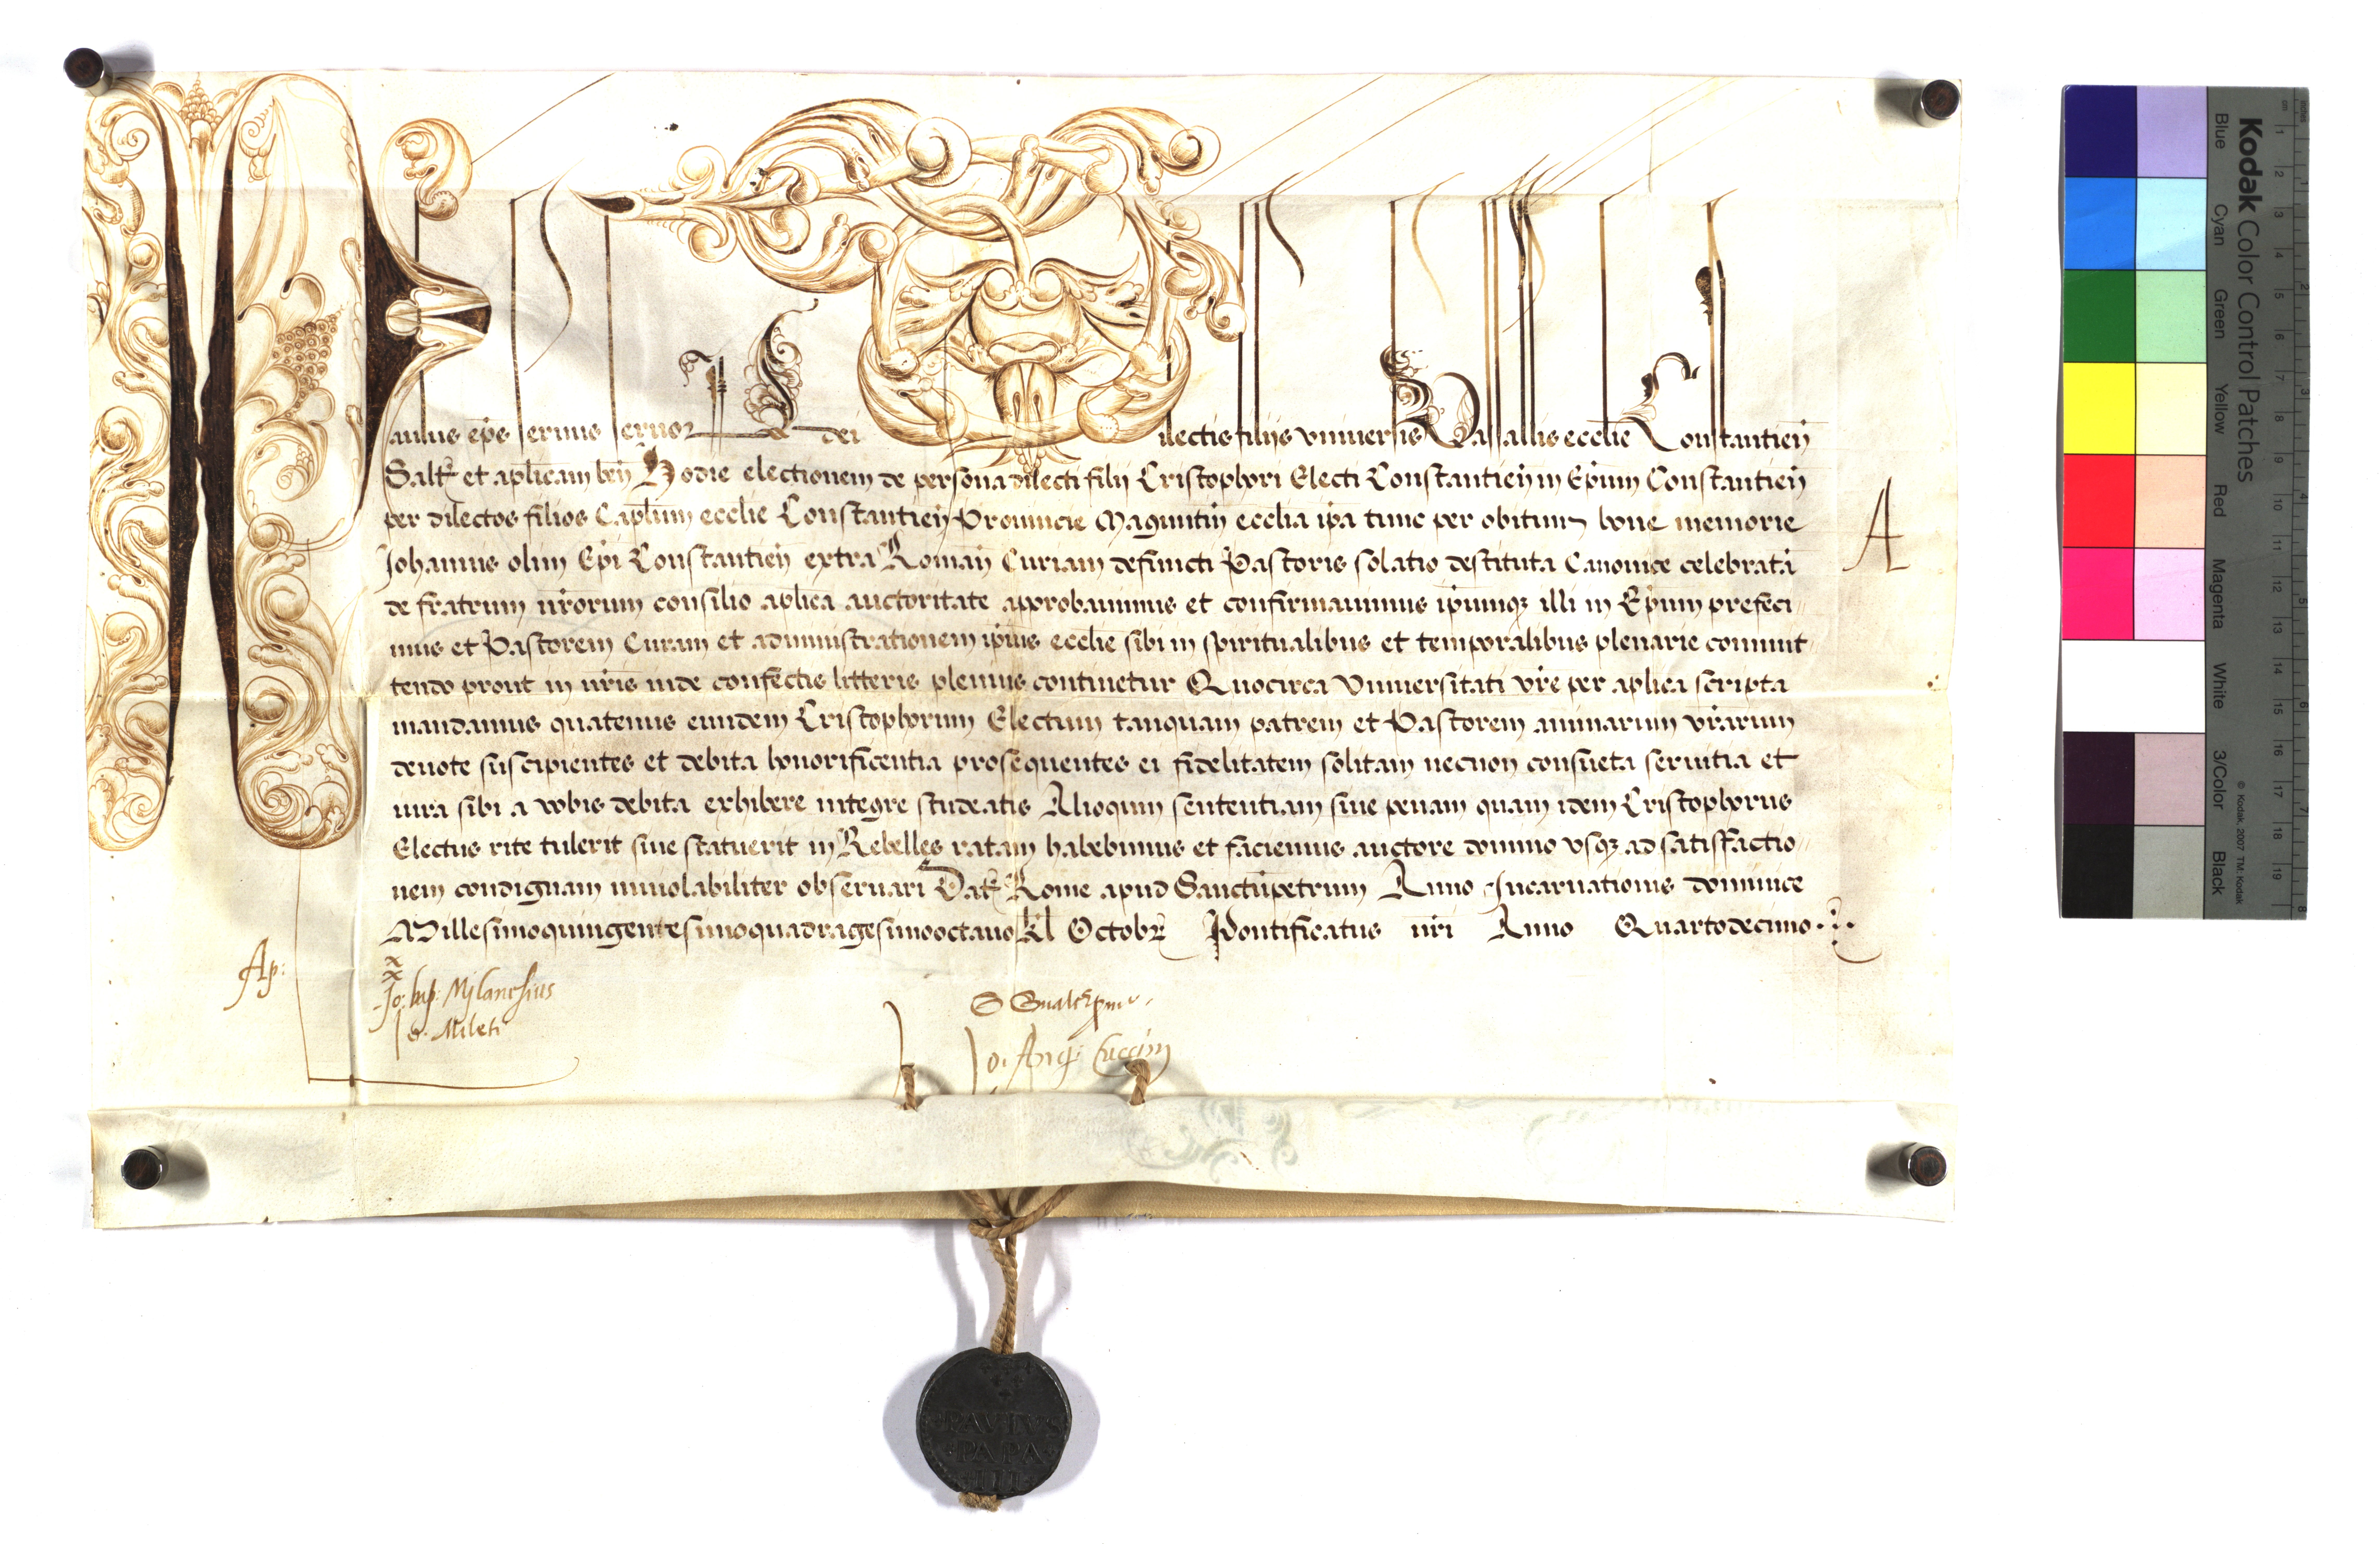 Paulus ep̄s seruus seruoꝝ dei Dilectis filijs vniuersis Vasallis eccl̄ie Constantien̄
Saltꝫ et ap̄licam ben̄ Hodie electionem de persona dilecti filij Cristophori Electi Constantien̄ in Ep̄um Constantien̄
per dilectos filios Cap̄lum eccl̄ie Constantien̄ Prouincie Maguntin̄ eccl̄ia ip̄a tunc per obitum bone memorie
Johannis olim Ep̄i Constantien̄ extra Roman̄ Curiam defuncti Pastoris solatio destituta Canonice celebratā
de fratrum nr̄orum consilio ap̄lica auctoritate approbauimus et confirmauimus ip̄umqꝫ illi in Ep̄um prefeci-
mus et Pastorem Curam et administrationem ip̄ius eccl̄ie sibi in spiritualibus et temporalibus plenarie commit-
tendo prout in nr̄is inde confectis litteris plenius continetur Quocirca Vniuersitati vr̄e per ap̄lica scripta
mandamus quatenus eundem Cristophorum Electum tanquam patrem et Pastorem animarum vr̄arum
deuote suscipientes et debita honorificentia prosequentes ei fidelitatem solitam necnon consueta seruitia et
iura sibi a vobis debita exhibere integre studeatis Alioquin sententiam siue penam quam idem Cristophorus
Electus rite tulerit siue statuerit in Rebelles ratam habebimus et faciemus auctore domino vsqꝫ ad satisfactio-
nem condignam inuiolabiliter obseruari Datꝫ Rome apud Sanctūpetrum Anno Incarnationis dominice
Millesimoquingentesimoquadragesimooctauo kl Octobr̄ Pontificatus nr̄i Anno Quartodecimo
A
Ap:
x
x
Jo: bap: Milanesius
Jo. Mileti
Jo. Ang: Cuccin
PAVLVS
PAPA
III
Kodak Color Control Patches
Blue Cyan Green Yellow Red Magenta White 3/Color Black
© Kodak, 2007 TM: Kodak
cm 1 2 3 4 5 6 7 8 9 10 11 12 13 14 15 16 17 18 19
inches 1 2 3 4 5 6 7 8